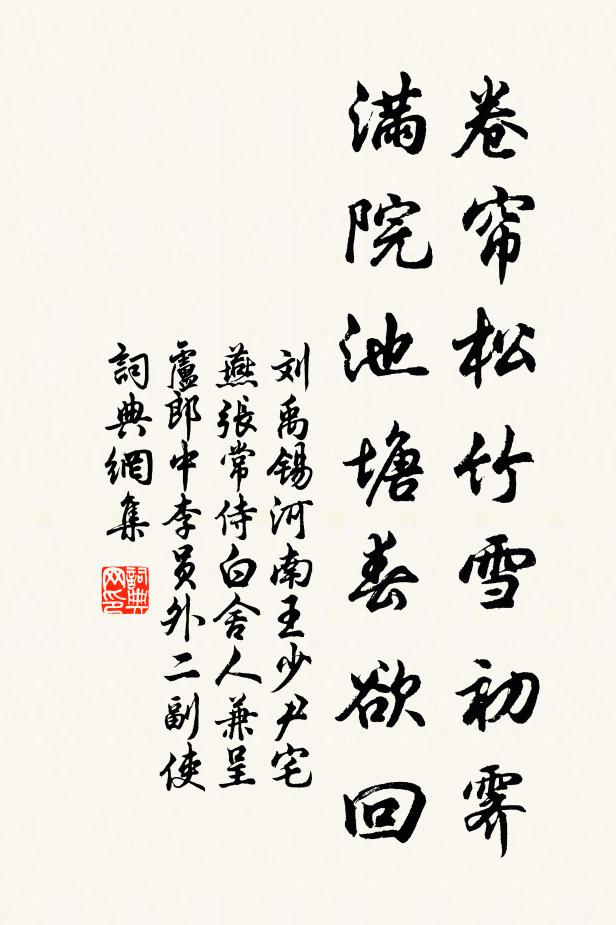 卷帘松竹雪初霁
满院池塘春欲回
刘禹锡河南王少尹宅
燕張常侍白舍人兼呈
盧郎中李员外二副使
詞典網集
詞典
网印